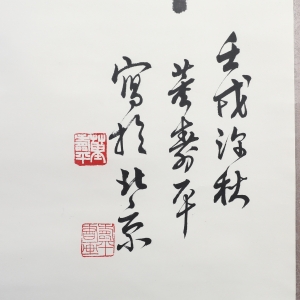 壬戌深秋
董寿平
寫於北京